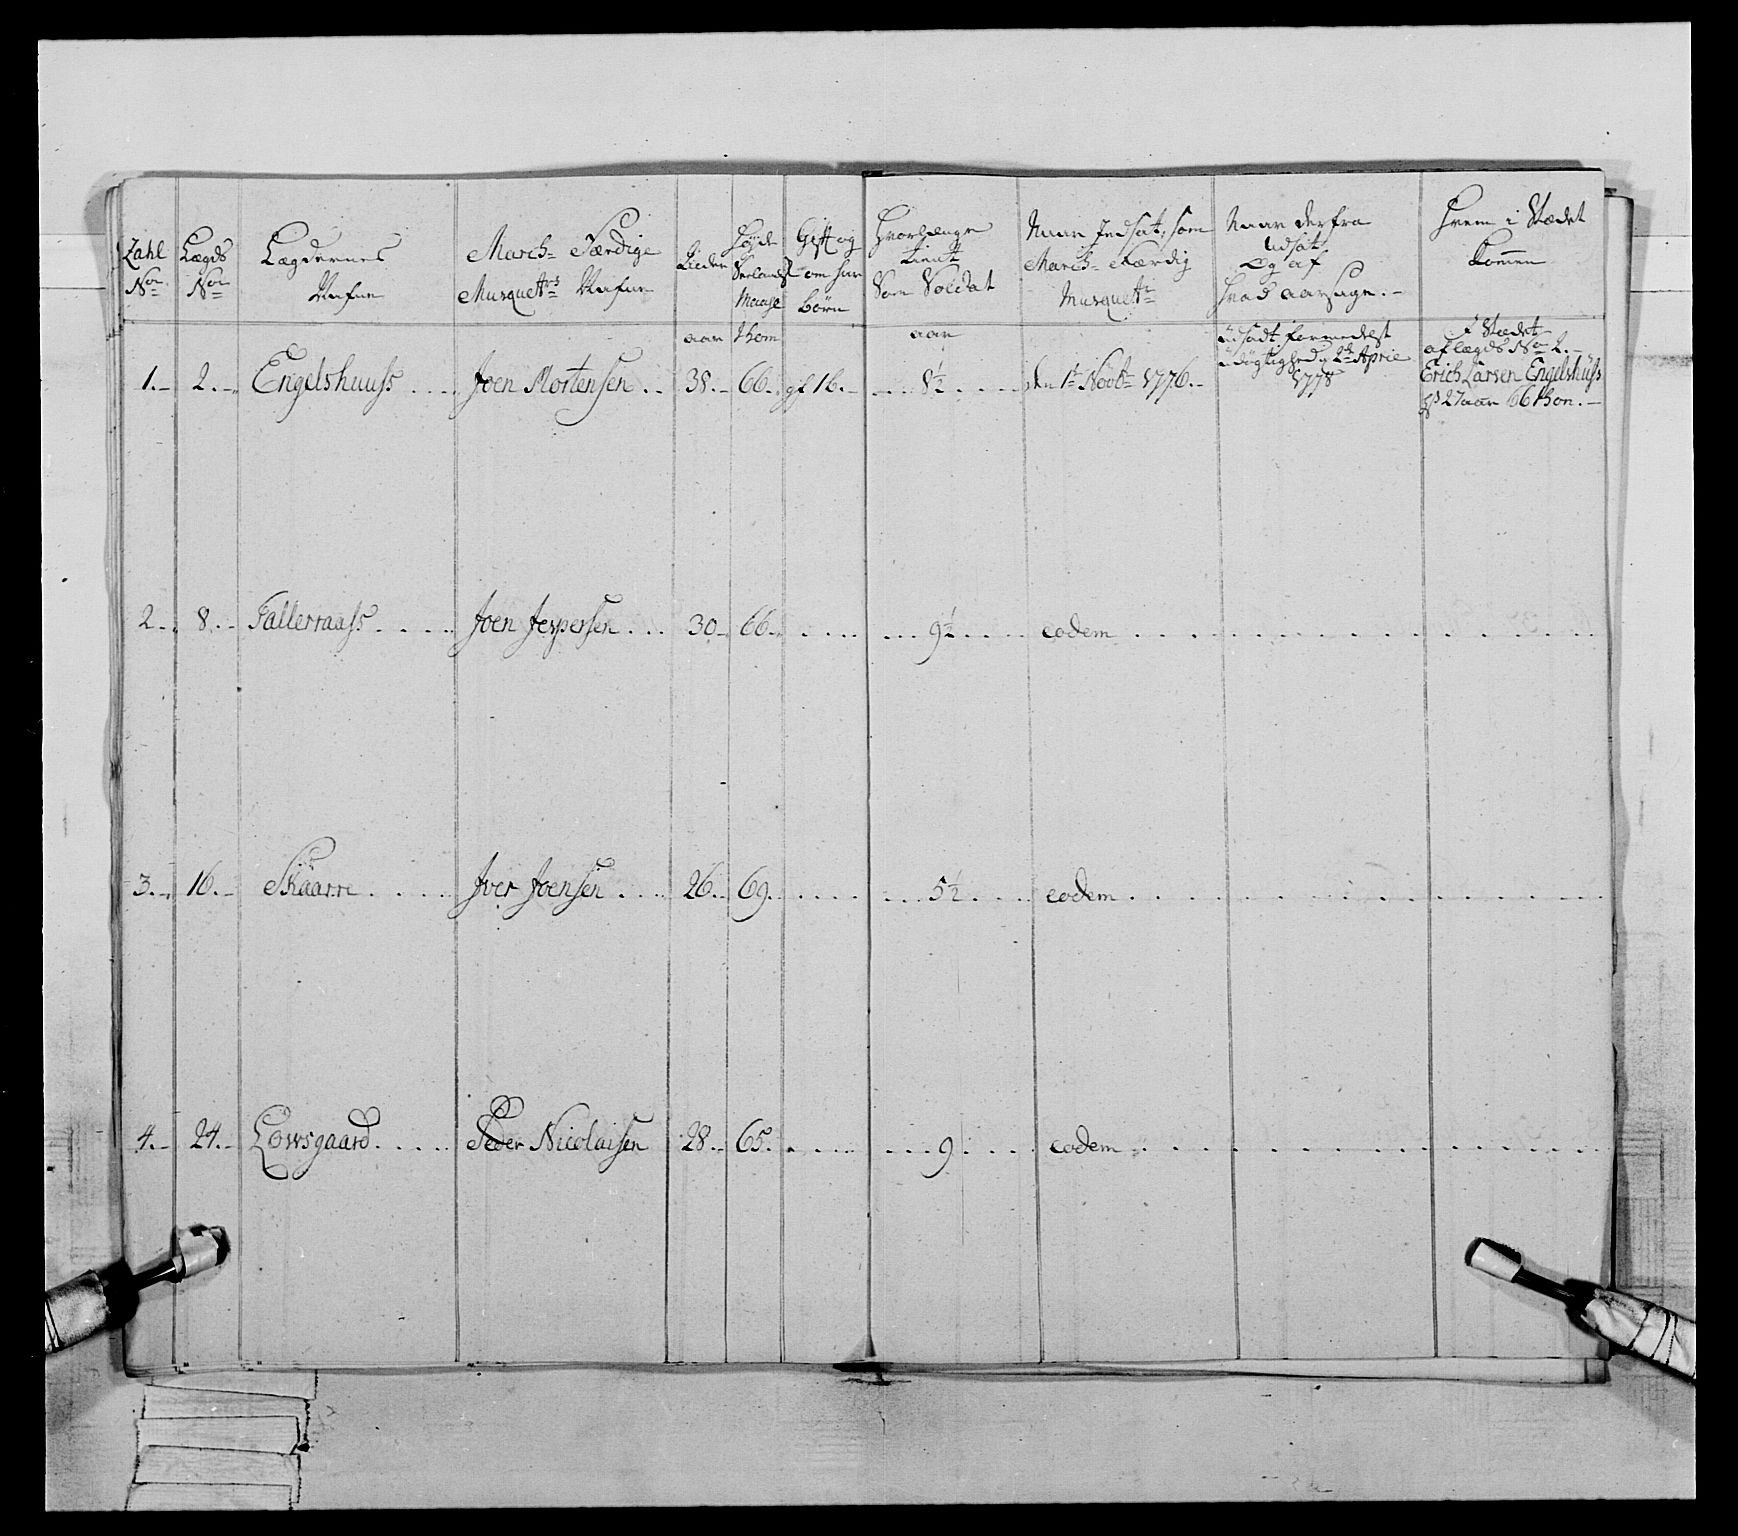 Zahl No
Lægds No
Lægdernes Nafne
March- Færdige Musquetrs Nafne
Alder
Høyde Serlands Maase
Gift og om har børn
Hvorlænge tient Som Soldat
Naar Indsat, som March- Færdig Musquetr
Naar derfra udsat, og af hvad aarsage.-
Hvem i Stædet kommen
aar thom aar
1.- 2.- Engelshuuss .... Joen Mortensen .. 38.- 66.- gf 1b.- ... 8½ .... den 1t Novbr 1776.- udsadt formedelst udygtighed d 2de Aprie 1778 I Stædet af lægds No 2.- Erich Larsen Engelshüss 27 aar 66 thom.-
2.. 8.- Fallerraass ..... Joen Jespersen ... 30.. 66.. .... ... 9½ .... eodem
3.. 16.- Skaarre ..... Iver Joensen .... 26.. 69. .... ... 5½ .... eodem
4.- 24.- Lowsgaard ..... Peder Nicolaisen 28.. 65. ..... ... 9 .... eodem